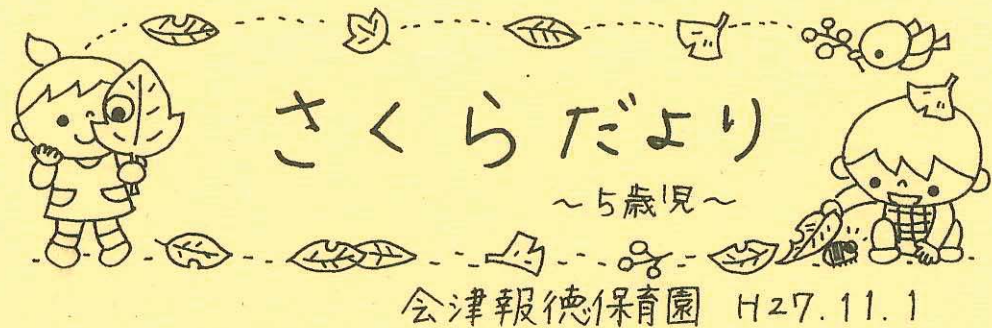 さくらだより
～5歳児～
会津報徳保育園 H27.11.1